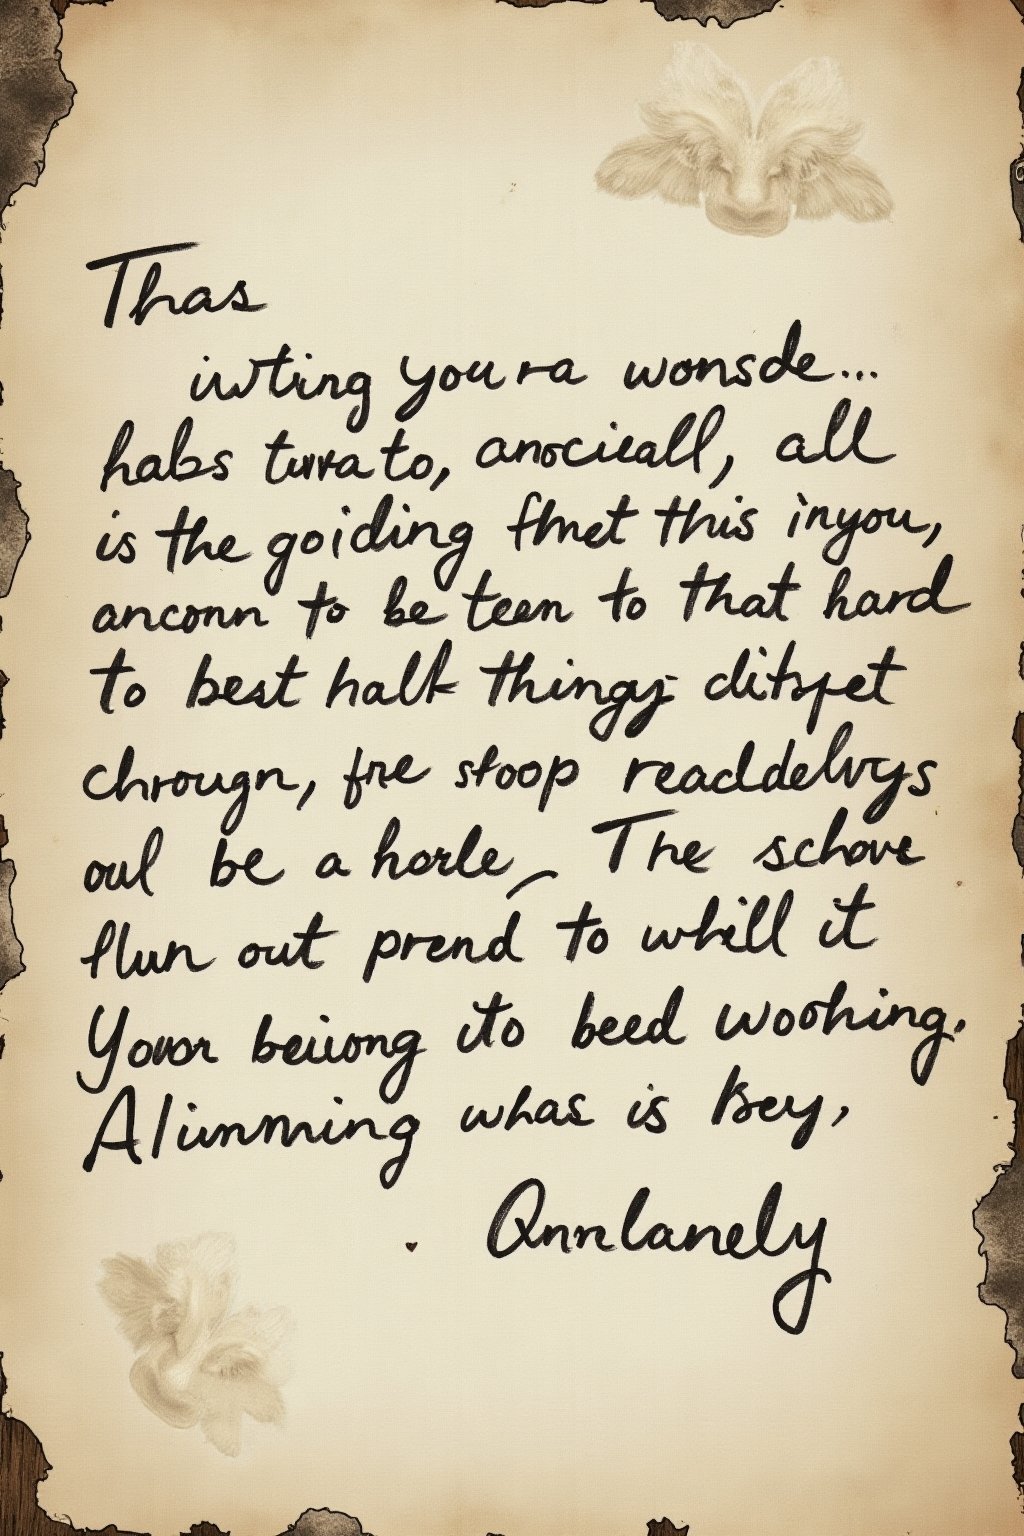 Thas
iwting you ra wonsde...
habs turato, anocieall, all
is the goiding fhnet this inyou,
anconn to be teen to that hard
to best halk thingy ditspet
chrougn, fre stoop readdelvys
oul be a horle
The schove
flun out prend to whill it
Yovor beiiong ito beed woohing.
Aliunming whas is Bey,
Qnnlanely